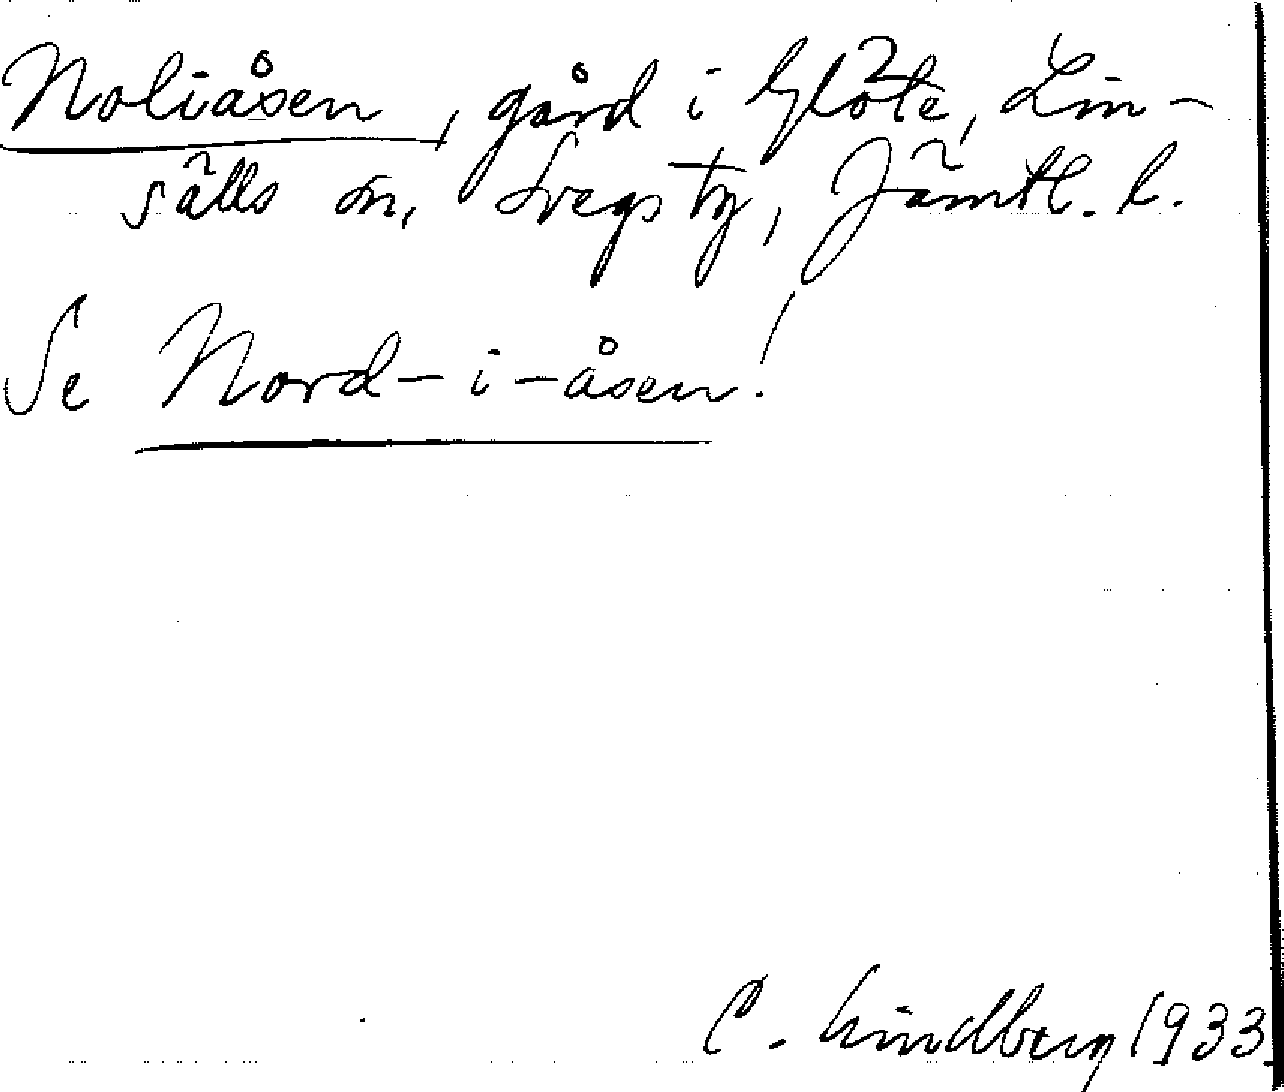 Noliåsen, gård i Glöte, Lin-
sälls sn, Svegs tg, Jämtl. l.
Se Nord-i-åsen!
C. Lindberg 1933